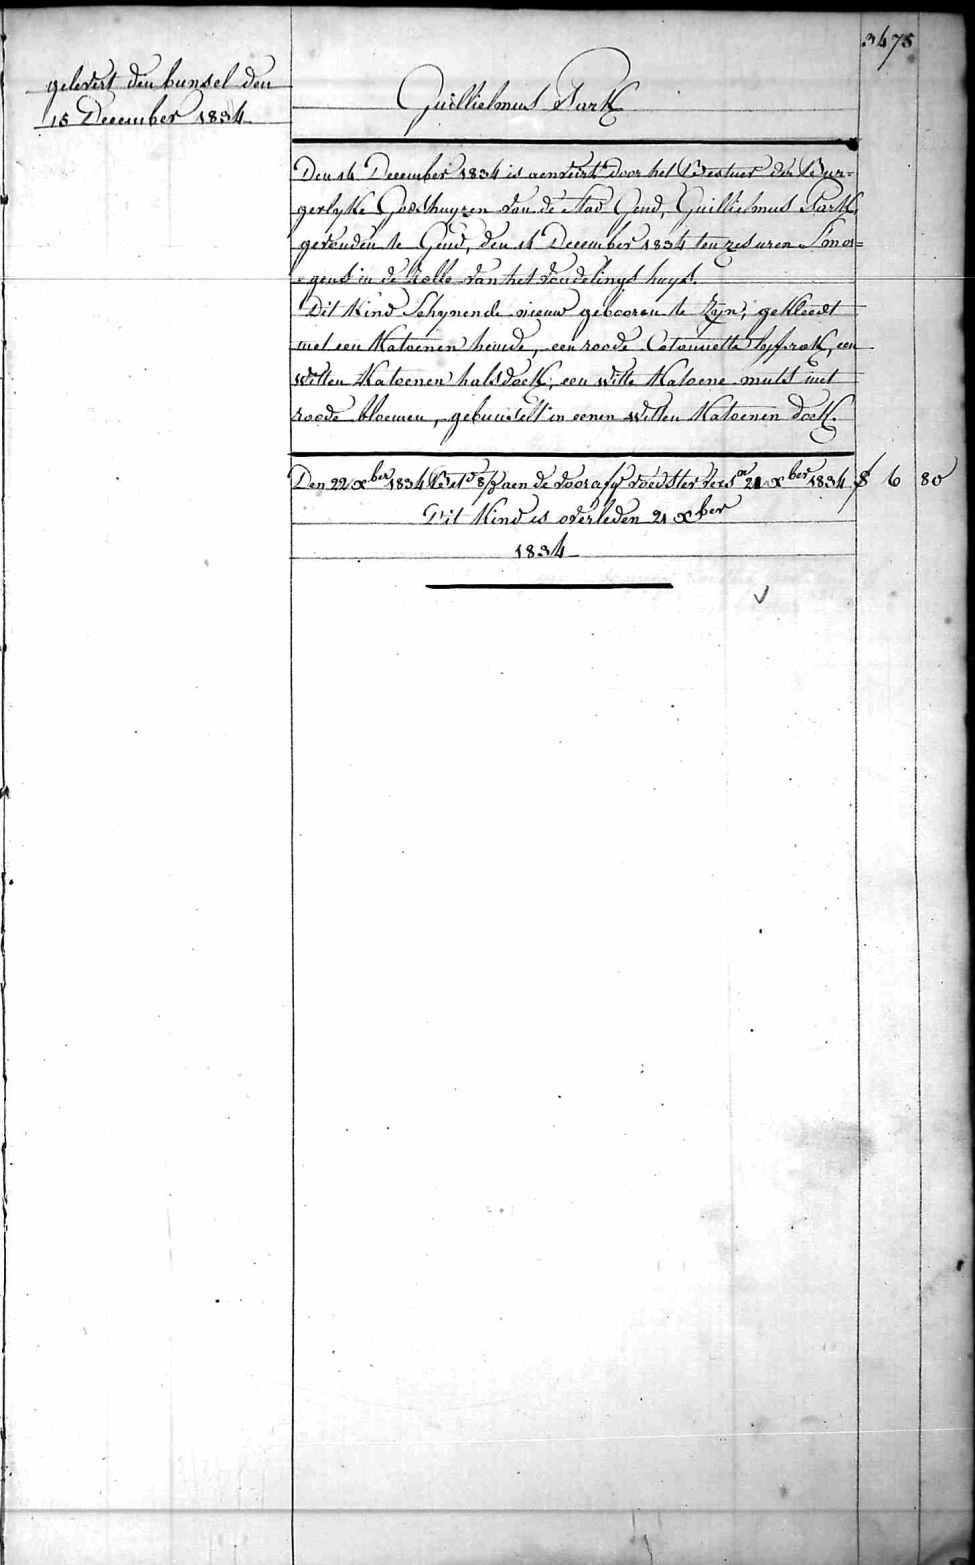 3475
gelevert den bunsel den
15 December 1834
Guillielmus Park
Den 14 December 1834 is aenveirt door het Bestuer der Bur=
gerlyke Godshuyzen van de Stad Gend, Guillielmus Park,
gevonden te Gend, den 14 December 1834 ten zes uren S'mor=
gens in de Rolle van het vondelings huys.
Dit Kind Schynende nieuw gebooren te Zyn, gekleedt
met een Katoenen hemde, een roode Cotonnette lyfrok, een
witten Katoenen halsdoek, een witte Katoene muts met
roode bloemen, gebunselt in eenen witten Katoenen doek.
Den 22 xber 1834 aen de voedster 21 xber 1834 ƒ 6 80
Dit Kind is overleden 21 xber
1834